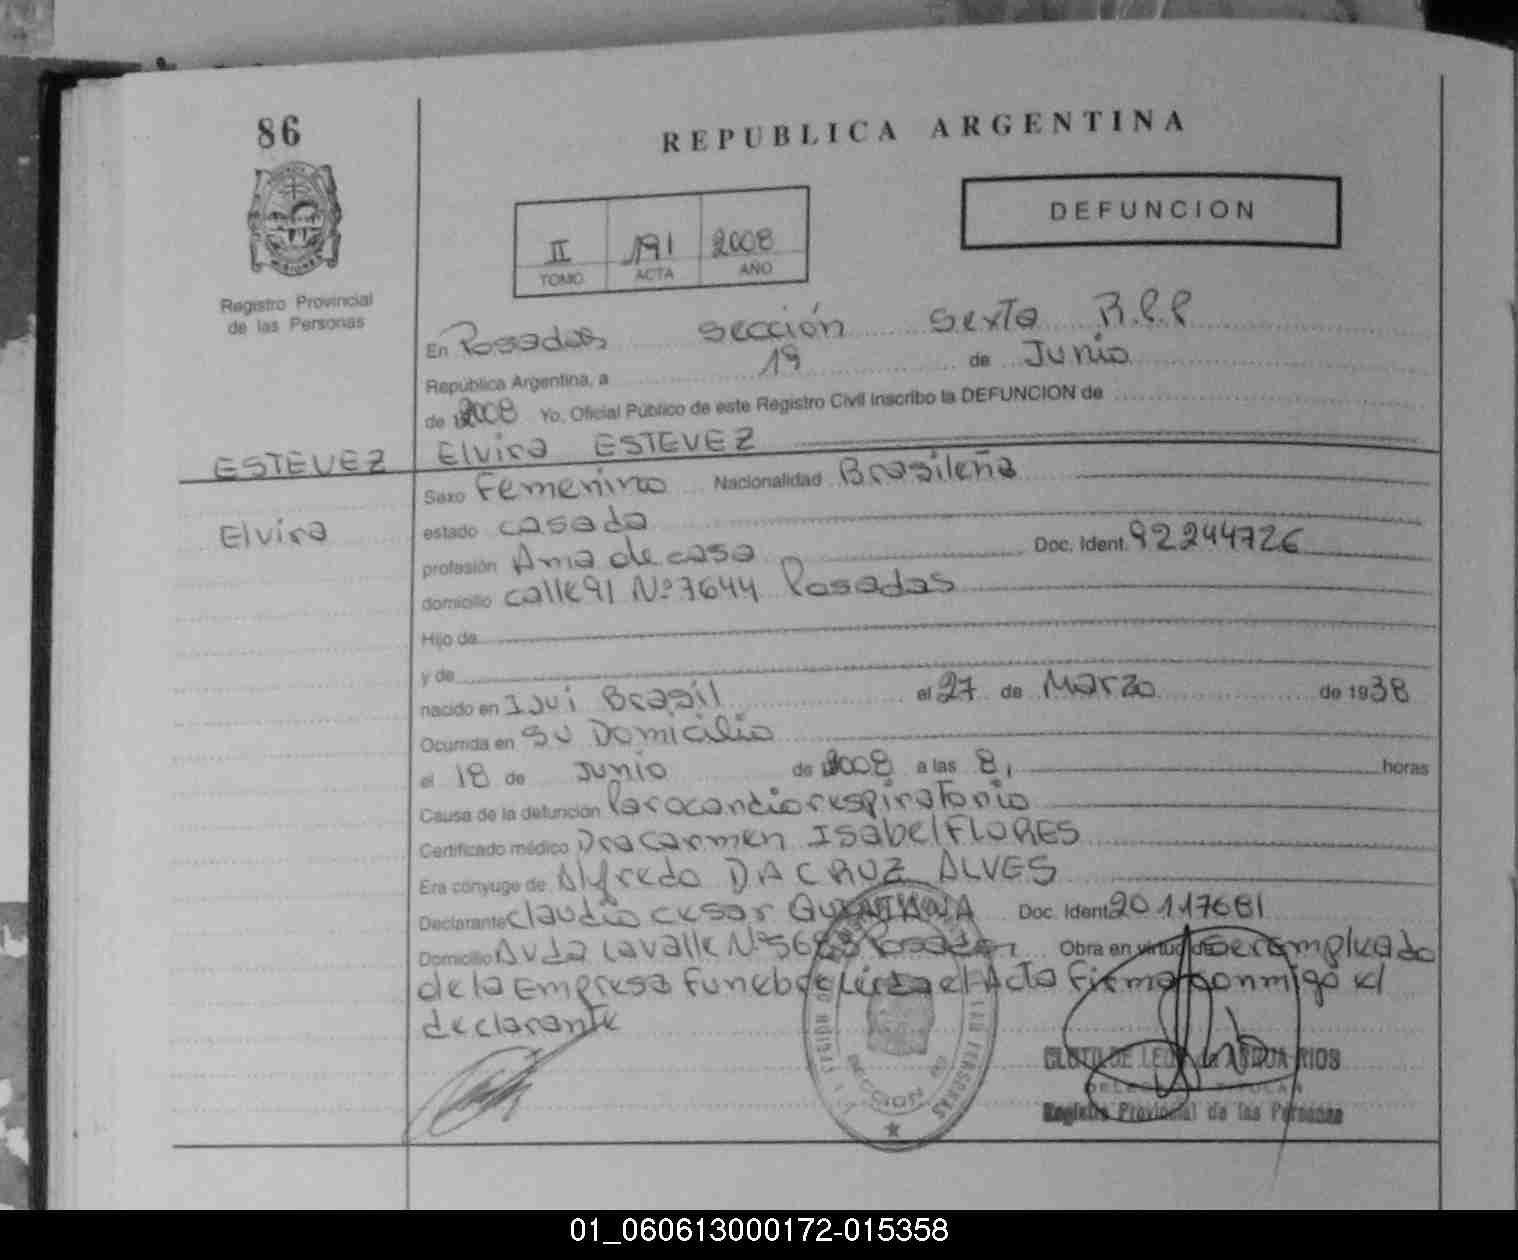 86
REPUBLICA ARGENTINA
DEFUNCION
II 191 2008
TOMO ACTA AÑO
MISIONES
Registro Provincial
de las Personas
En Posadas sección sexta R.P.P
República Argentina, a 19 de Junio
de 2008 Yo, Oficial Público de este Registro Civil inscribo la DEFUNCION de
ESTEVEZ Elvira ESTEVEZ
Elvira
Sexo Femenino Nacionalidad Brasileña
estado casada
profesión Ama de casa Doc. Ident. 92244726
domicilio calle 91 Nº 7644 Posadas
Hijo de
y de
nacido en Ijui Brasil el 27 de Marzo de 1938
Ocurrida en su Domicilio
el 18 de Junio de 2008 a las 8, horas
Causa de la defunción Parocardiorespiratorio
Certificado médico Dra Carmen Isabel FLORES
Era cónyuge de Alfredo DA CRUZ ALVES
Declarante Claudio cesar Doc. Ident 20117681
Domicilio Avda Lavalle Nº Posadas Obra en virtud de ser empleado
de la Empresa Funebre Leida el Acta Firma conmigo el
declarante
SECCION
LAS PERSONAS
CLOTILDE RIOS
Registro Provincial de las Personas
01_060613000172-015358